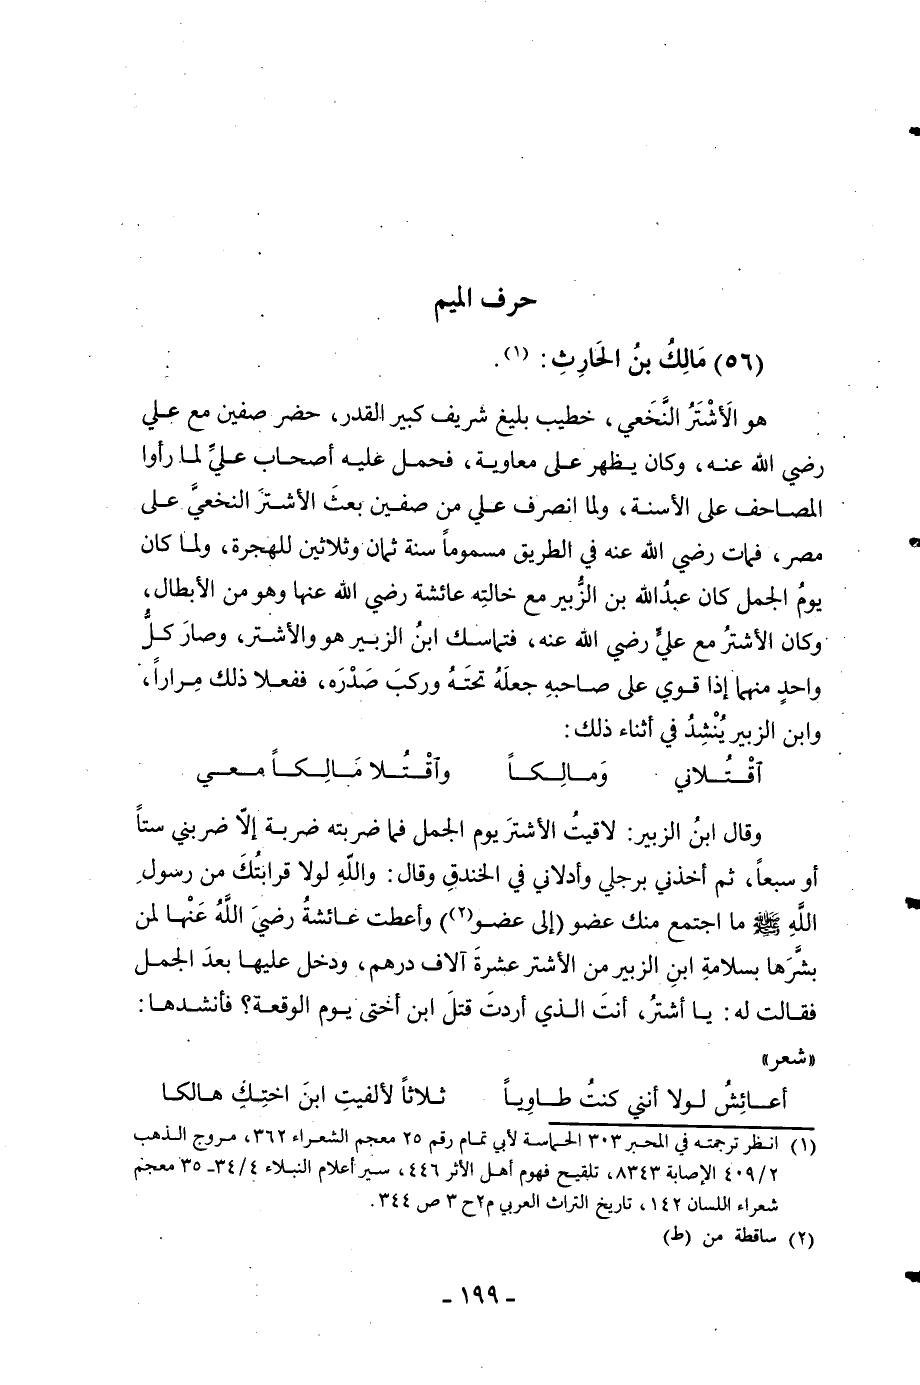 حرف الميم
(٥٦) مَالِكُ بنُ الحَارِثِ: (١).
هو الَأشْتَرُ النَّخَعي، خطيب بليغ شريف كبير القدر، حضر صفين مع علي
رضي الله عنه، وكان يظهر على معاوية، فحمل عليه أصحاب عليٍّ لما رأوا
المصاحف على الأسنة، ولما انصرف علي من صفين بعثَ الأشترَ النخعيَّ على
مصر، فمات رضي الله عنه في الطريق مسموماً سنة ثمان وثلاثين للهجرة، ولما كان
يومُ الجمل كان عبدُالله بن الزُّبير مع خالتِه عائشة رضي الله عنها وهو من الأبطال،
وكان الأشترُ مع عليٍّ رضي الله عنه، فتماسك ابنُ الزبير هو والأشتر، وصارَ كلُّ
واحدٍ منهما إذا قوي على صاحبهِ جعلَهُ تحتَهُ وركبَ صَدْرَه، ففعلا ذلك مِراراً،
وابن الزبير يُنْشِدُ في أثناء ذلك:
آقْتُلاني وَمالِكاً وآقْتُلا مَالِكاً معي
وقال ابنُ الزبير: لاقيتُ الأشترَ يوم الجمل فما ضربته ضربة إلّا ضربني ستاً
أو سبعاً، ثم أخذني برجلي وأدلاني في الخندقِ وقال: واللّهِ لولا قرابتُكَ من رسولِ
اللَّهِ ﷺ ما اجتمع منك عضو (إلى عضو(٢)) وأعطت عائشةُ رضيَ اللَّهُ عَنْها لمن
بشَّرَها بسلامةِ ابنِ الزبير من الأشتر عشرةَ آلاف درهم، ودخل عليها بعدَ الجمل
فقالت له: يا أشترُ، أنتَ الذي أردتَ قتلَ ابن أختي يوم الوقعة؟ فأنشدها:
«شعر»
أعائِشُ لولا أنني كنتُ طاوِياً ثلاثاً لألفيتِ ابنَ اختِكِ هالكا
(١) انظر ترجمته في المحبر ٣٠٣ الحماسة لأبي تمام رقم ٢٥ معجم الشعراء ٣٦٢، مروج الذهب
٤٠٩/٢ الإصابة ٨٣٤٣، تلقيح فهوم أهل الأثر ٤٤٦، سير أعلام النبلاء ٣٤/٤ـ ٣٥ معجم
شعراء اللسان ١٤٢، تاريخ التراث العربي م٢ح ٣ ص ٣٤٤.
(٢) ساقطة من (ط)
- ١٩٩ -